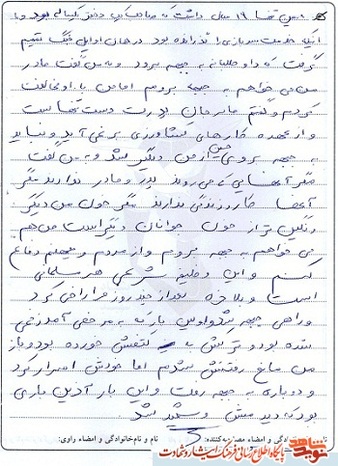 حسین تنها ۱۹ سال داشت که صاحب یک دختر یکساله بود و با
اینکه خدمت سربازی را نگذرانده بود در همان اوایل جنگ تصمیم
گرفت که داوطلبانه به جبهه برود و به من گفت مادر
من می خواهم به جبهه بروم اما من با او مخالفت
کردم و گفتم مادر جان پدرت دست تنهاست
و از عهده کارهای کشاورزی بر نمی آید و نباید
به جبهه بروی حسین از من دلگیر شد و به من گفت
مگر آنهایی که می روند پدر و مادر ندارند مگر
آنها کار و زندگی ندارند مگر خون من دیگر
رنگین تر از خون جوانان دیگر است من هم
می خواهم به جبهه بروم و از مردم و میهنم دفاع
کنم و این وظیفه شرعی هر مسلمانی
است و بلاخره بعد از چند روز ما را راضی کرد
و راهی جبهه شد اولین بار که به مرخصی آمد زخمی
شده بود و ترکش به کتفش خورده بود و باز
من مانع رفتنش شدم اما خودش اصرار کرد
و دوباره به جبهه رفت و این بار آخرین باری
بود که دیدمش و شهید شد
نام و نام خانوادگی و امضاء راوی:
نام خانوادگی و امضاء مصاحبه کننده:
نوید شاهد
پایگاه اطلاع رسانی فرهنگ ایثار و شهادت